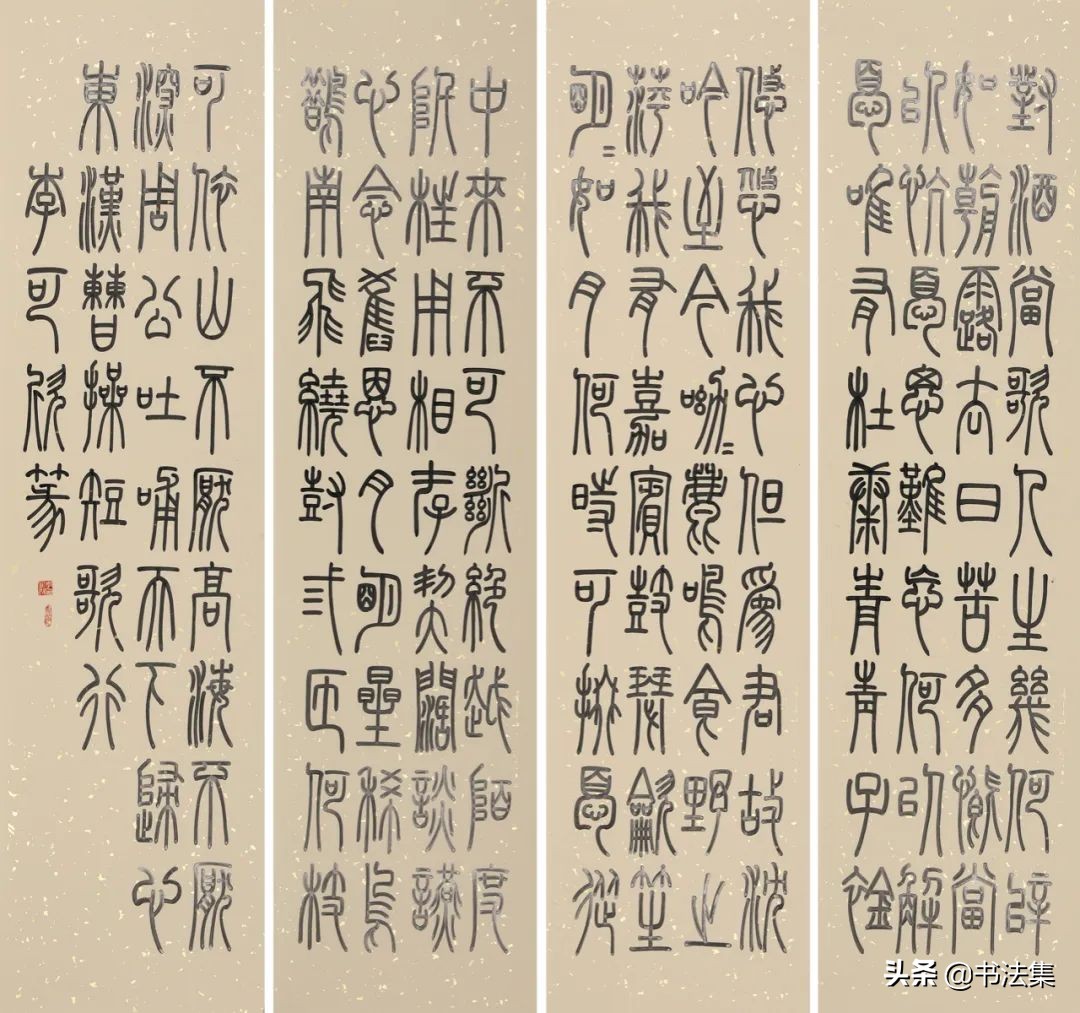 對酒當歌人生幾何辟
如朝露去日苦多慨當
以忼憂思難忘何以解
憂唯有杜康青青子衿
悠悠我心但為君故沈
吟至今呦〻鹿鳴食野之
苹我有嘉賓鼓瑟龡笙
明〻如月何時可掇憂從
中來不可斷絕越陌度
阡枉用相存契闊談讌
心念舊恩月明星稀烏
鵲南飛繞樹弎匝何枝
可依山不厭高海不厭
深周公吐哺天下歸心
東漢曹操短歌行
李可欣篆
头条 @书法集